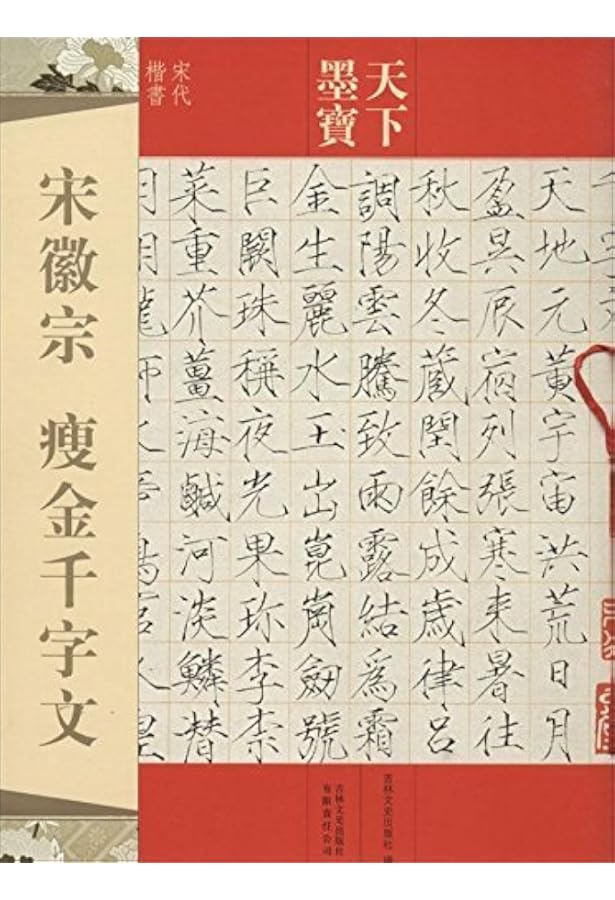 天下
墨寶
宋代
楷書
宋徽宗 瘦金千字文
天地元黃宇宙洪荒日月
盈昃辰宿列張寒来暑往
秋收冬蔵閏餘成歲律呂
調陽雲騰致雨露結爲霜
金生麗水玉出崑崗劔號
巨闕珠稱夜光果珎李柰
菜重芥薑海鹹河淡鱗潛
吉林文史出版社
吉林文史出版社
有限责任公司